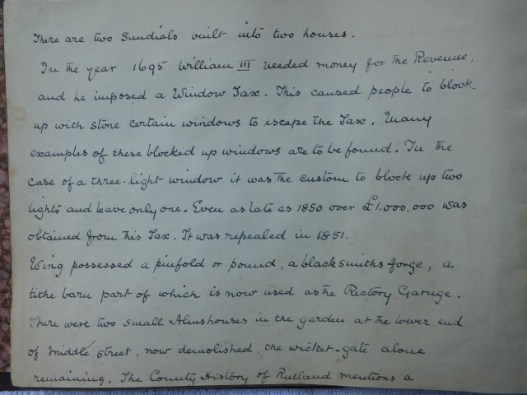 There are two Sundials built into two houses.
In the year 1695 William III needed money for the Revenue,
and he imposed a Window Tax. This caused people to block
up with stone certain windows to escape the Tax. Many
examples of these blocked up windows are to be found. In the
case of a three-light window it was the custom to block up two
lights and leave only one. Even as late as 1850 over £1,000,000 was
obtained from this Tax. It was repealed in 1851.
Wing possessed a pinfold or pound, a blacksmiths forge, a
tithe barn part of which is now used as the Rectory Garage.
There were two small Almshouses in the garden at the lower end
of Middle Street, now demolished, the wicket-gate alone
remaining. The County History of Rutland mentions a